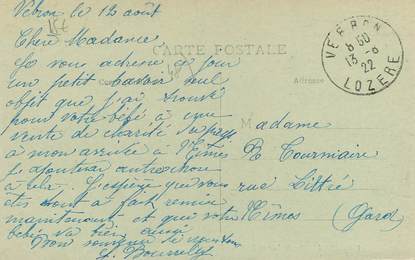 Vebron le 12 août
Chère Madame
CARTE POSTALE
Je vous adresse ce jour
un petit bavoir seul
objet que j'ai trouvé
pour votre bébé à une
vente de charité du pays
à mon arrivée à Nîmes
J'ajouterai autre chose
à cela. J'espère que vous
êtes tout à fait remise
maintenant et que votre
bébé va bien aussi
Mon souvenir
Adresse
Madame
R Tourniaire
rue Littré
Nîmes (Gard)
VEBRON
6 50
13 -8
22
LOZERE